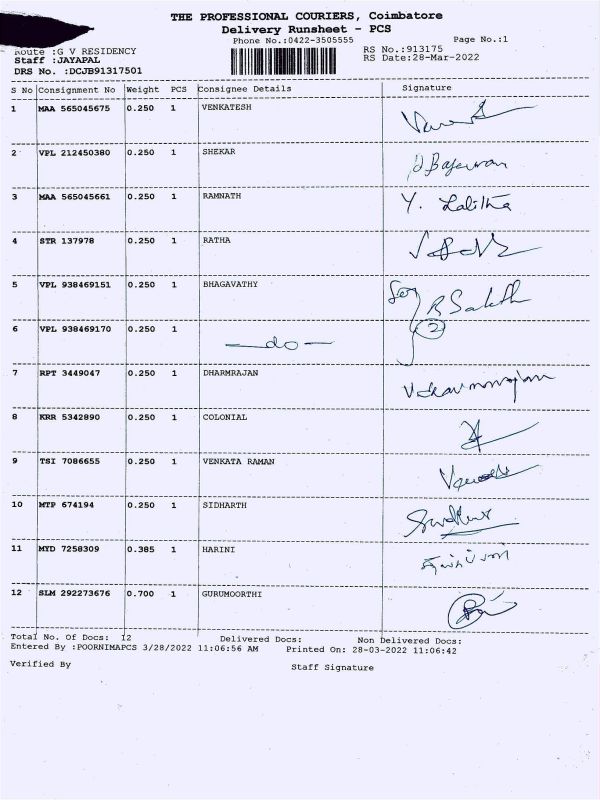 THE PROFESSIONAL COURIERS, Coimbatore
Delivery Runsheet - PCS
Phone No.:0422-3505555 Page No.:1
Route :G V RESIDENCY RS No.:913175
Staff :JAYAPAL RS Date:28-Mar-2022
DRS No. :DCJB91317501
S No Consignment No Weight PCS Consignee Details Signature
1 MAA 565045675 0.250 1 VENKATESH
2 VPL 212450380 0.250 1 SHEKAR
3 MAA 565045661 0.250 1 RAMNATH Y. Lalitha
4 STR 137978 0.250 1 RATHA
5 VPL 938469151 0.250 1 BHAGAVATHY
6 VPL 938469170 0.250 1 —do— 2
7 RPT 3449047 0.250 1 DHARMRAJAN
8 KRR 5342890 0.250 1 COLONIAL
9 TSI 7086655 0.250 1 VENKATA RAMAN
10 MTP 674194 0.250 1 SIDHARTH
11 MYD 7258309 0.385 1 HARINI
12 SLM 292273676 0.700 1 GURUMOORTHI
Total No. Of Docs: 12 Delivered Docs: Non Delivered Docs:
Entered By :POORNIMAPCS 3/28/2022 11:06:56 AM Printed On: 28-03-2022 11:06:42
Verified By Staff Signature